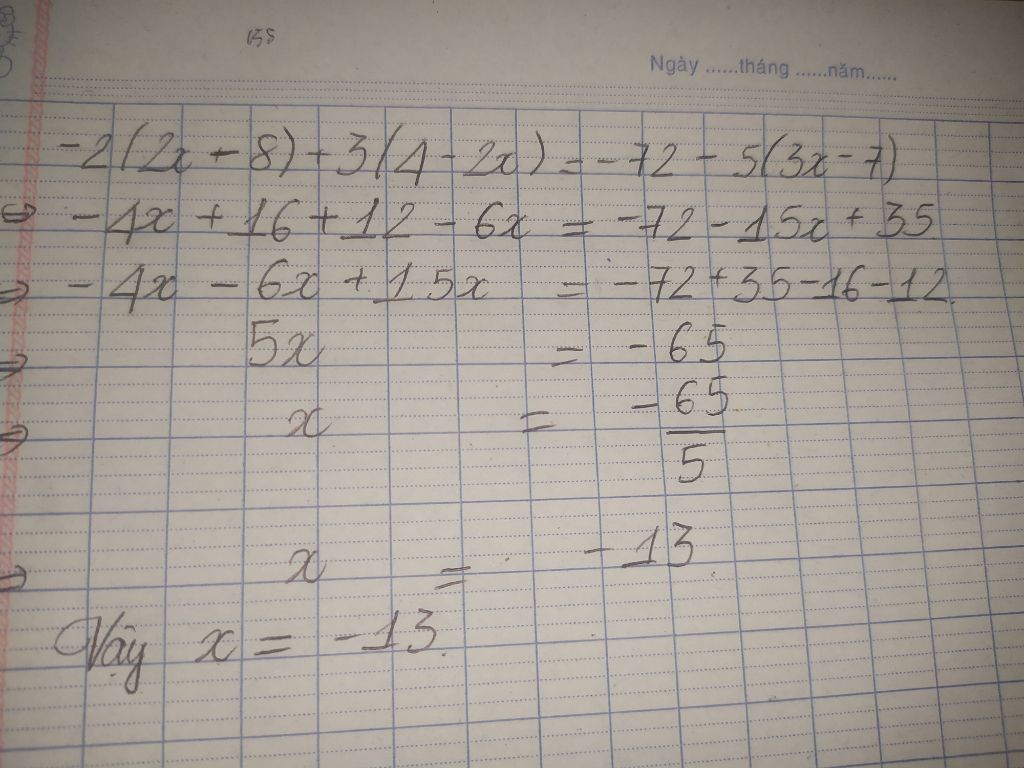 Ngày ......tháng ......năm......
-2(2x - 8) + 3(4 - 2x) = -72 - 5(3x - 7)
⇔ - 4x + 16 + 12 - 6x = -72 - 15x + 35
⇒ - 4x - 6x + 15x = -72 + 35 - 16 - 12
⇒ 5x = - 65
⇒ x = - 65/5
⇒ x = - 13
Vậy x = -13.